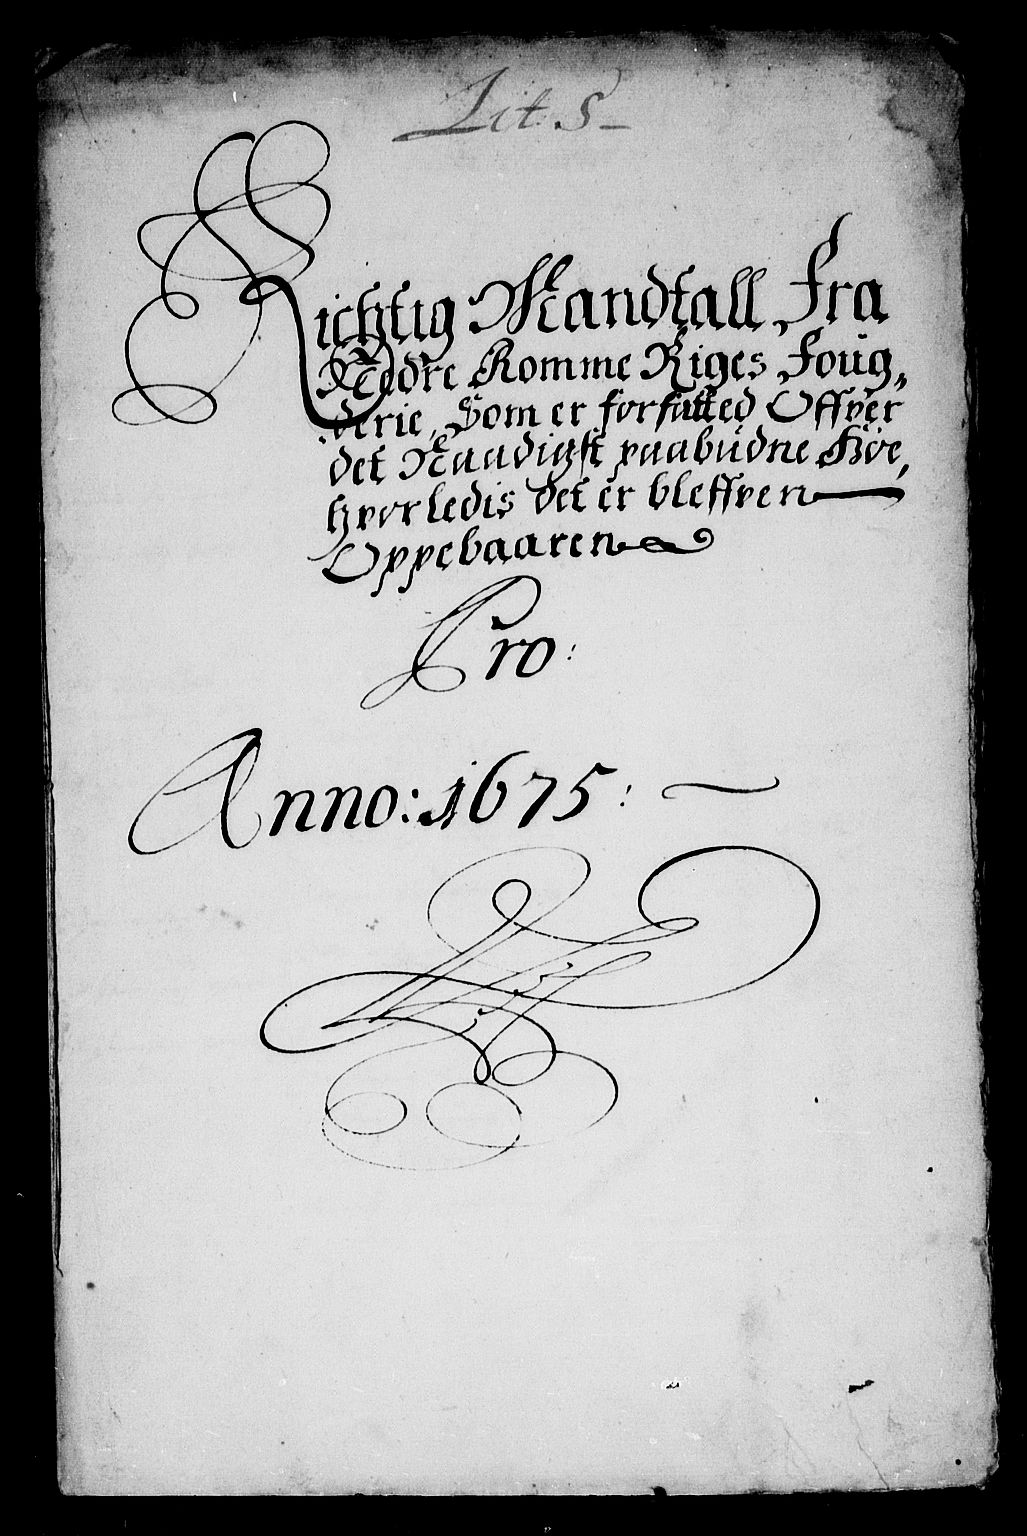 Lit: S
Richtig Mandtall Fra
Nedre Romme Riges Foug,
derie, Som er forfatted Offver
det Naadigst paabudne Høe,
hvorledis det er bleffven
Oppebaaren
Pro:
Anno: 1675: